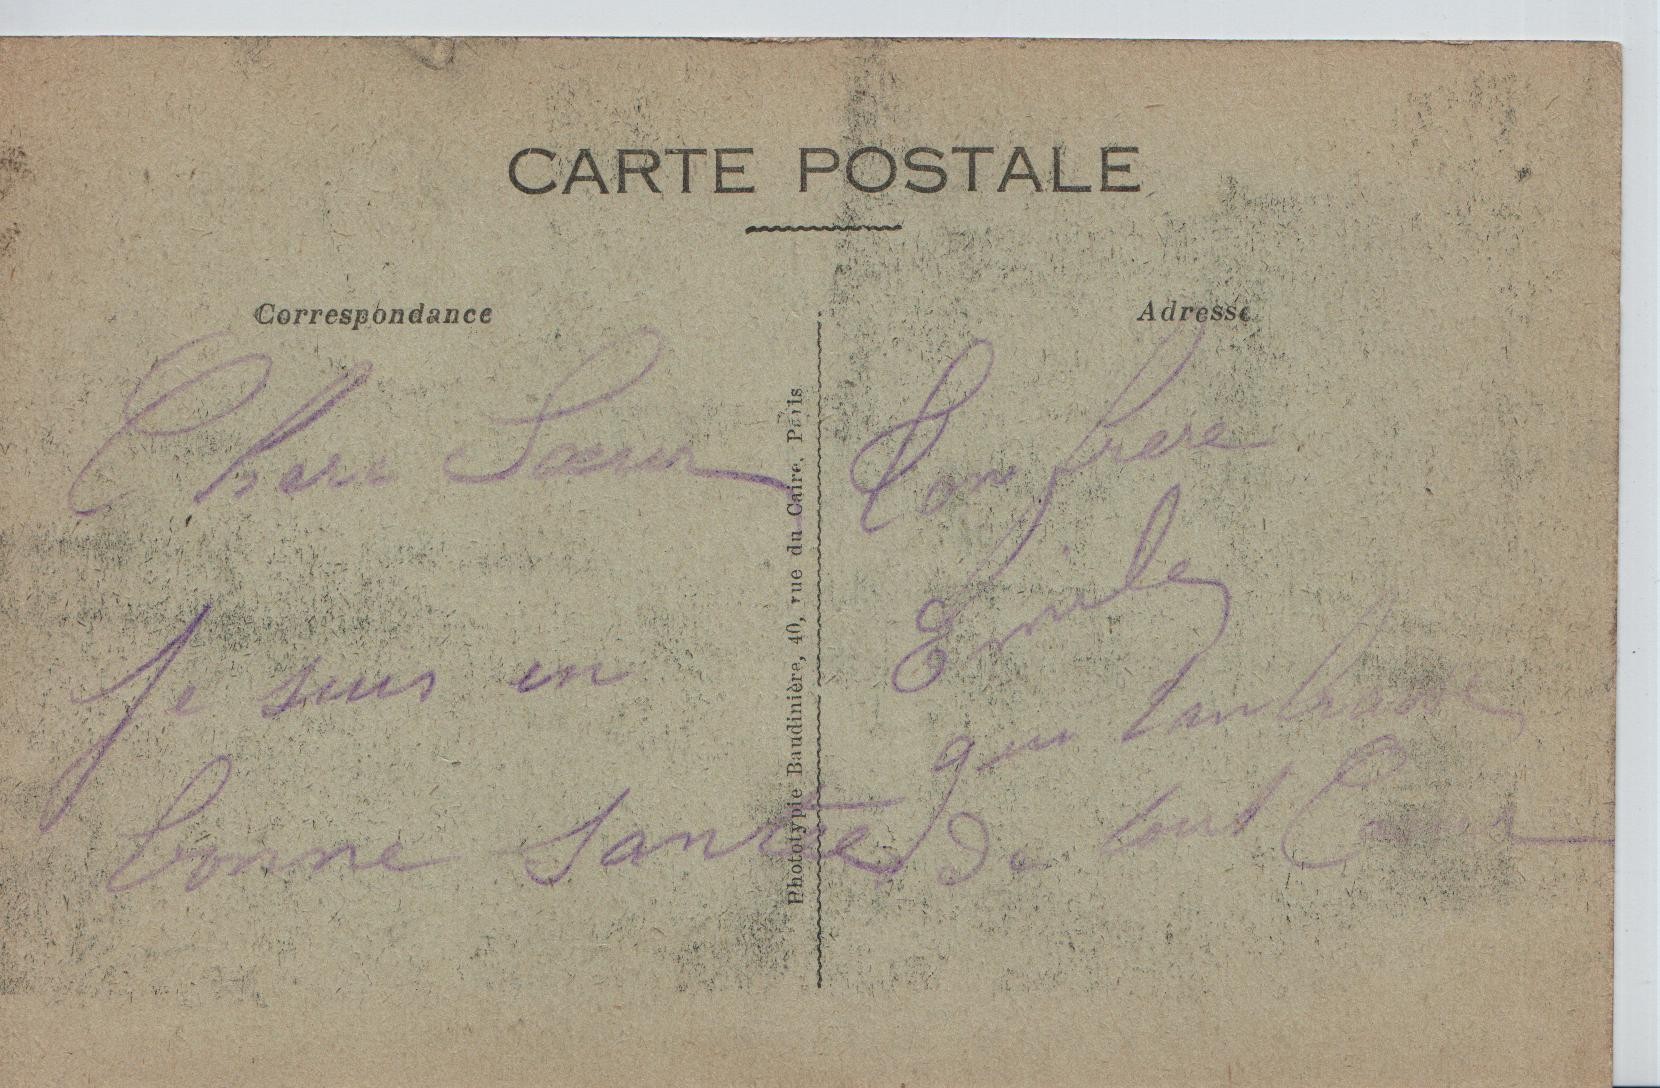 CARTE POSTALE
Correspondance
Chere Sœur
Je suis en
bonne santée
Phototypie Baudinière, 40, rue du Caire, Paris
Adresse
Ton frere
Emile
qui tanbrasse
De tout Cœur